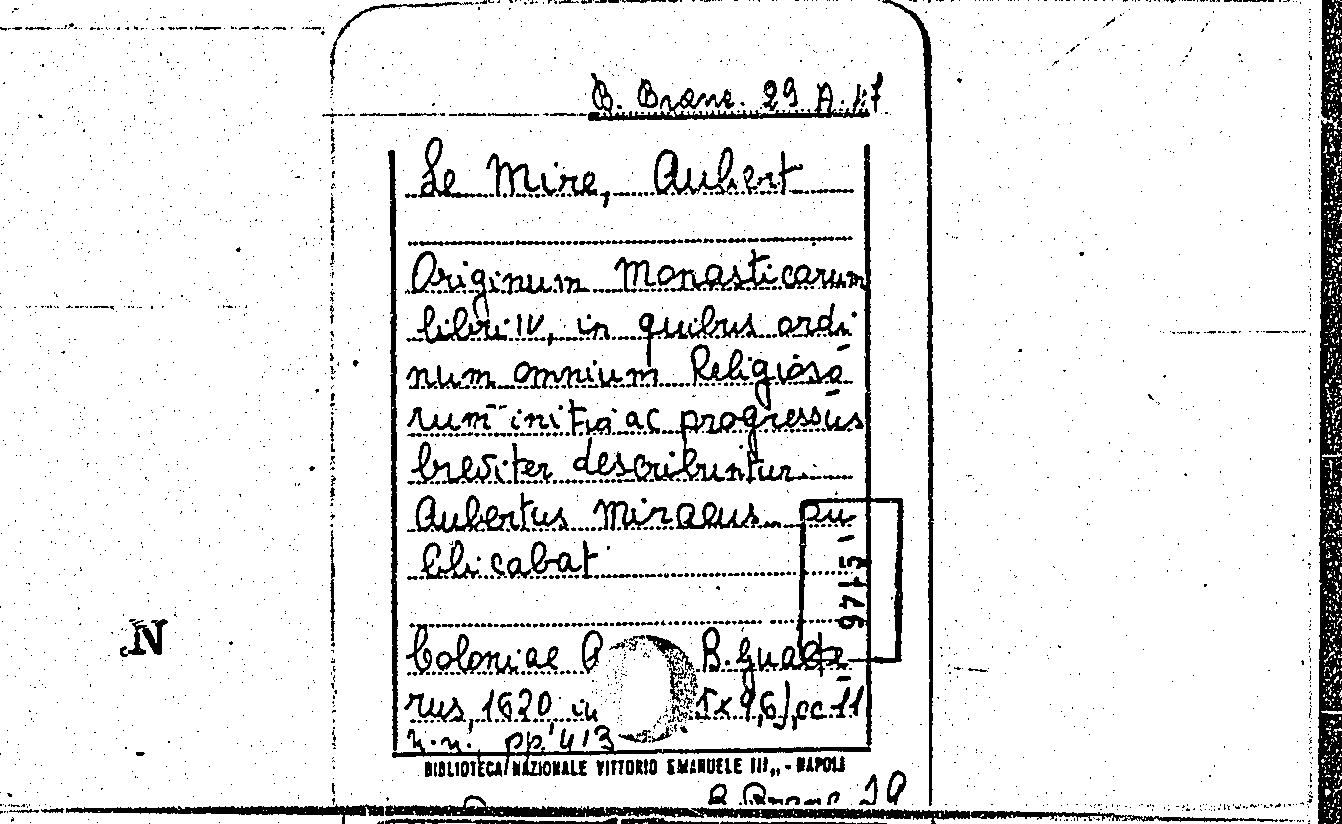 B. Branc. 29 A. 47
Le Mire, Aubert
Originum Monasticarum
libri IV, in quibus ordi-
num omnium Religioso-
rum initia ac progressus
breviter describuntur.
Aubertus Miraeus pu-
blicabat
5176
N
Coloniae B. Gualte-
rus, 1620 in 5x9,6), cc 11
n.n., pp. 413
BIBLIOTECA NAZIONALE VITTORIO EMANUELE III,, - NAPOLI
B. Branc. 29